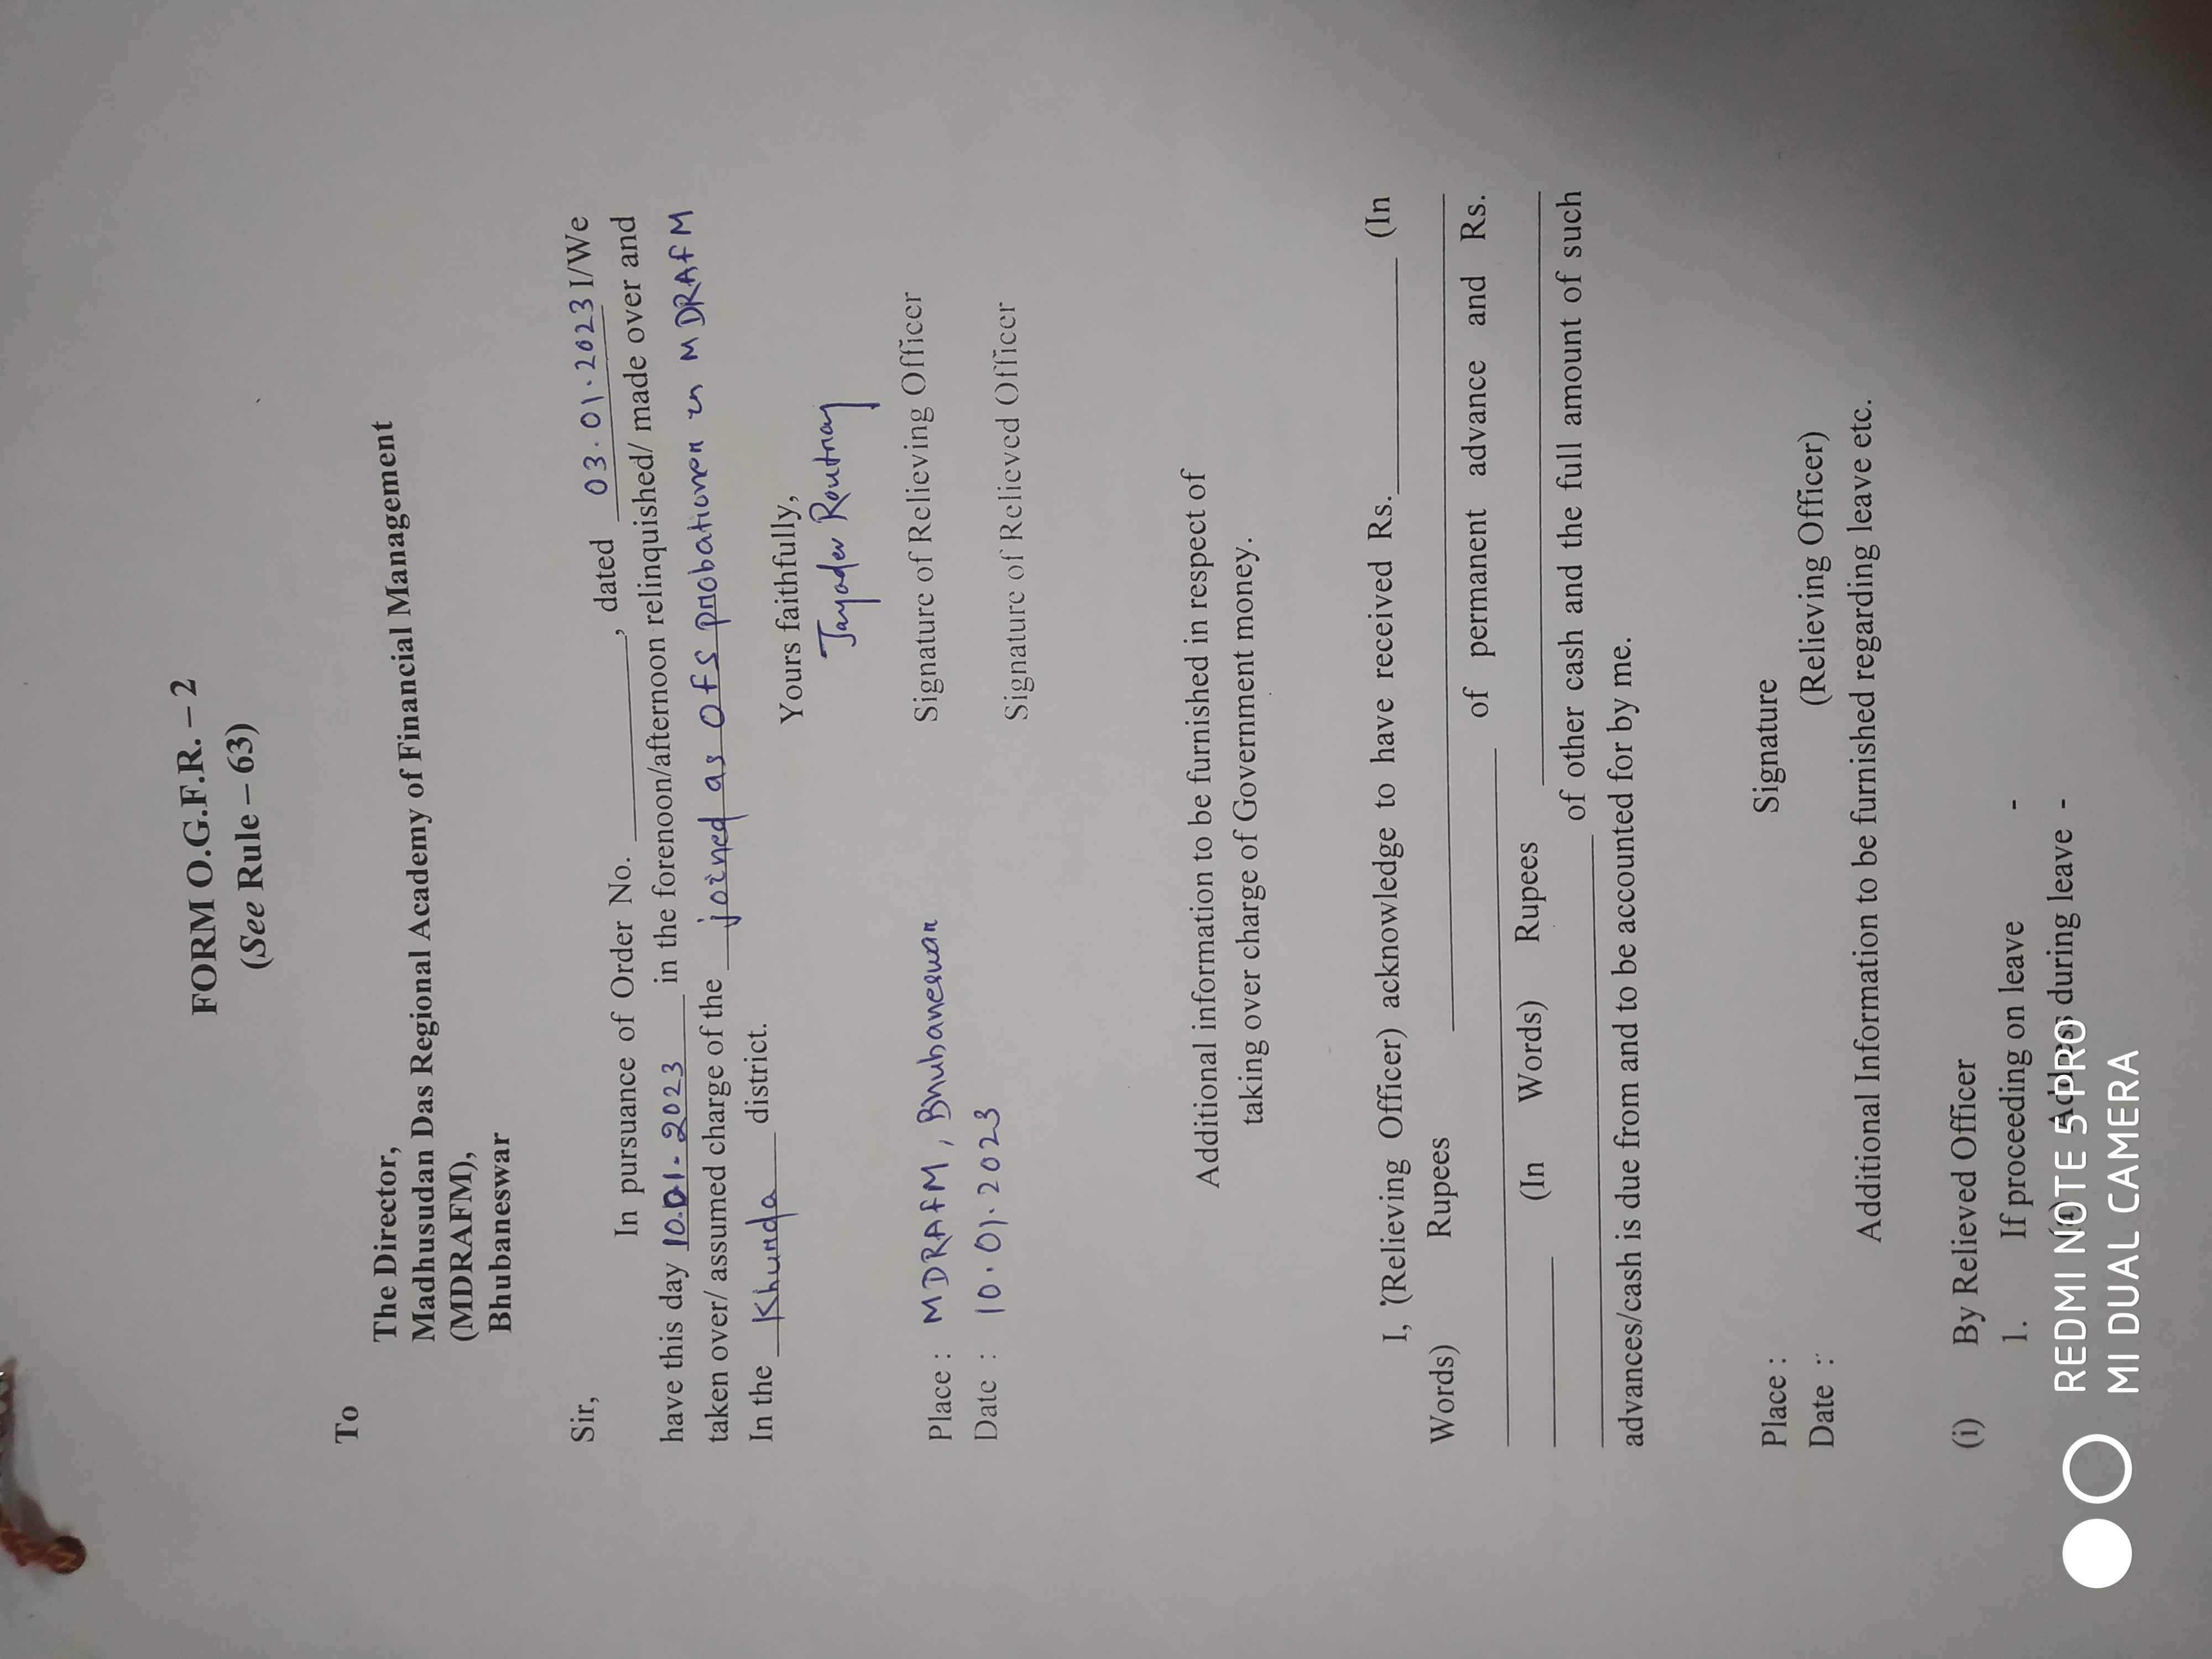 FORM O.G.F.R. – 2
(See Rule – 63)
To
The Director,
Madhusudan Das Regional Academy of Financial Management
(MDRAFM),
Bhubaneswar
Sir,
In pursuance of Order No. __________, dated 03.01.2023 I/We
have this day 10.01.2023 in the forenoon/afternoon relinquished/ made over and
taken over/ assumed charge of the joined as OFS probationer in MDRAFM
In the Khurda district.
Yours faithfully,
Jayadev Routray
Signature of Relieving Officer
Place : MDRAFM, Bhubaneswar
Date : 10.01.2023
Signature of Relieved Officer
Additional information to be furnished in respect of
taking over charge of Government money.
I, (Relieving Officer) acknowledge to have received Rs.__________ (In
Words) Rupees __________
__________ of permanent advance and Rs.
__________ (In Words) Rupees __________
__________ of other cash and the full amount of such
advances/cash is due from and to be accounted for by me.
Place :
Signature
Date :
(Relieving Officer)
Additional Information to be furnished regarding leave etc.
(i) By Relieved Officer
1. If proceeding on leave -
(a) Address during leave -
REDMI NOTE 5 PRO
MI DUAL CAMERA